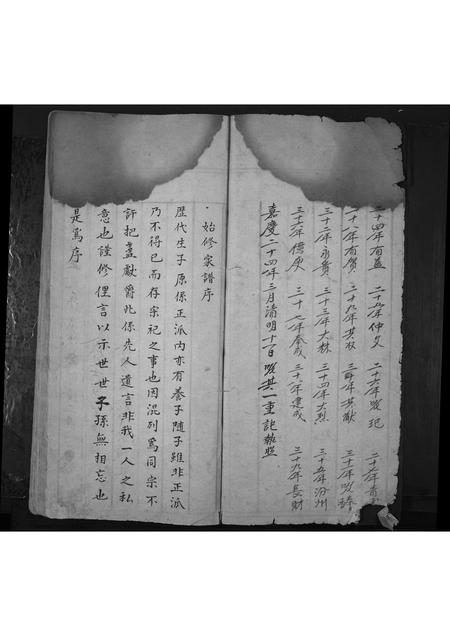 二十四年有孟 二十五年仲文 二十六年 二十七年
二十八年有贤 二十九年其 三十年其献 三十一年
三十二年永贵 三十三年大林 三十四年大烈 三十五年汾州
三十六年 三十七年泰成 三十八年建成 三十九年長財
嘉慶二十四年三月清明十一日 其一重記執照
始修家譜序
歷代生子原係正派內亦有養子隨子雖非正派
乃不得已而存宗祀之事也因混列爲同宗不
許把盞獻爵此係先人遺言非我一人之私
意也謹修俚言以示世世子孫無相忘也
是爲序